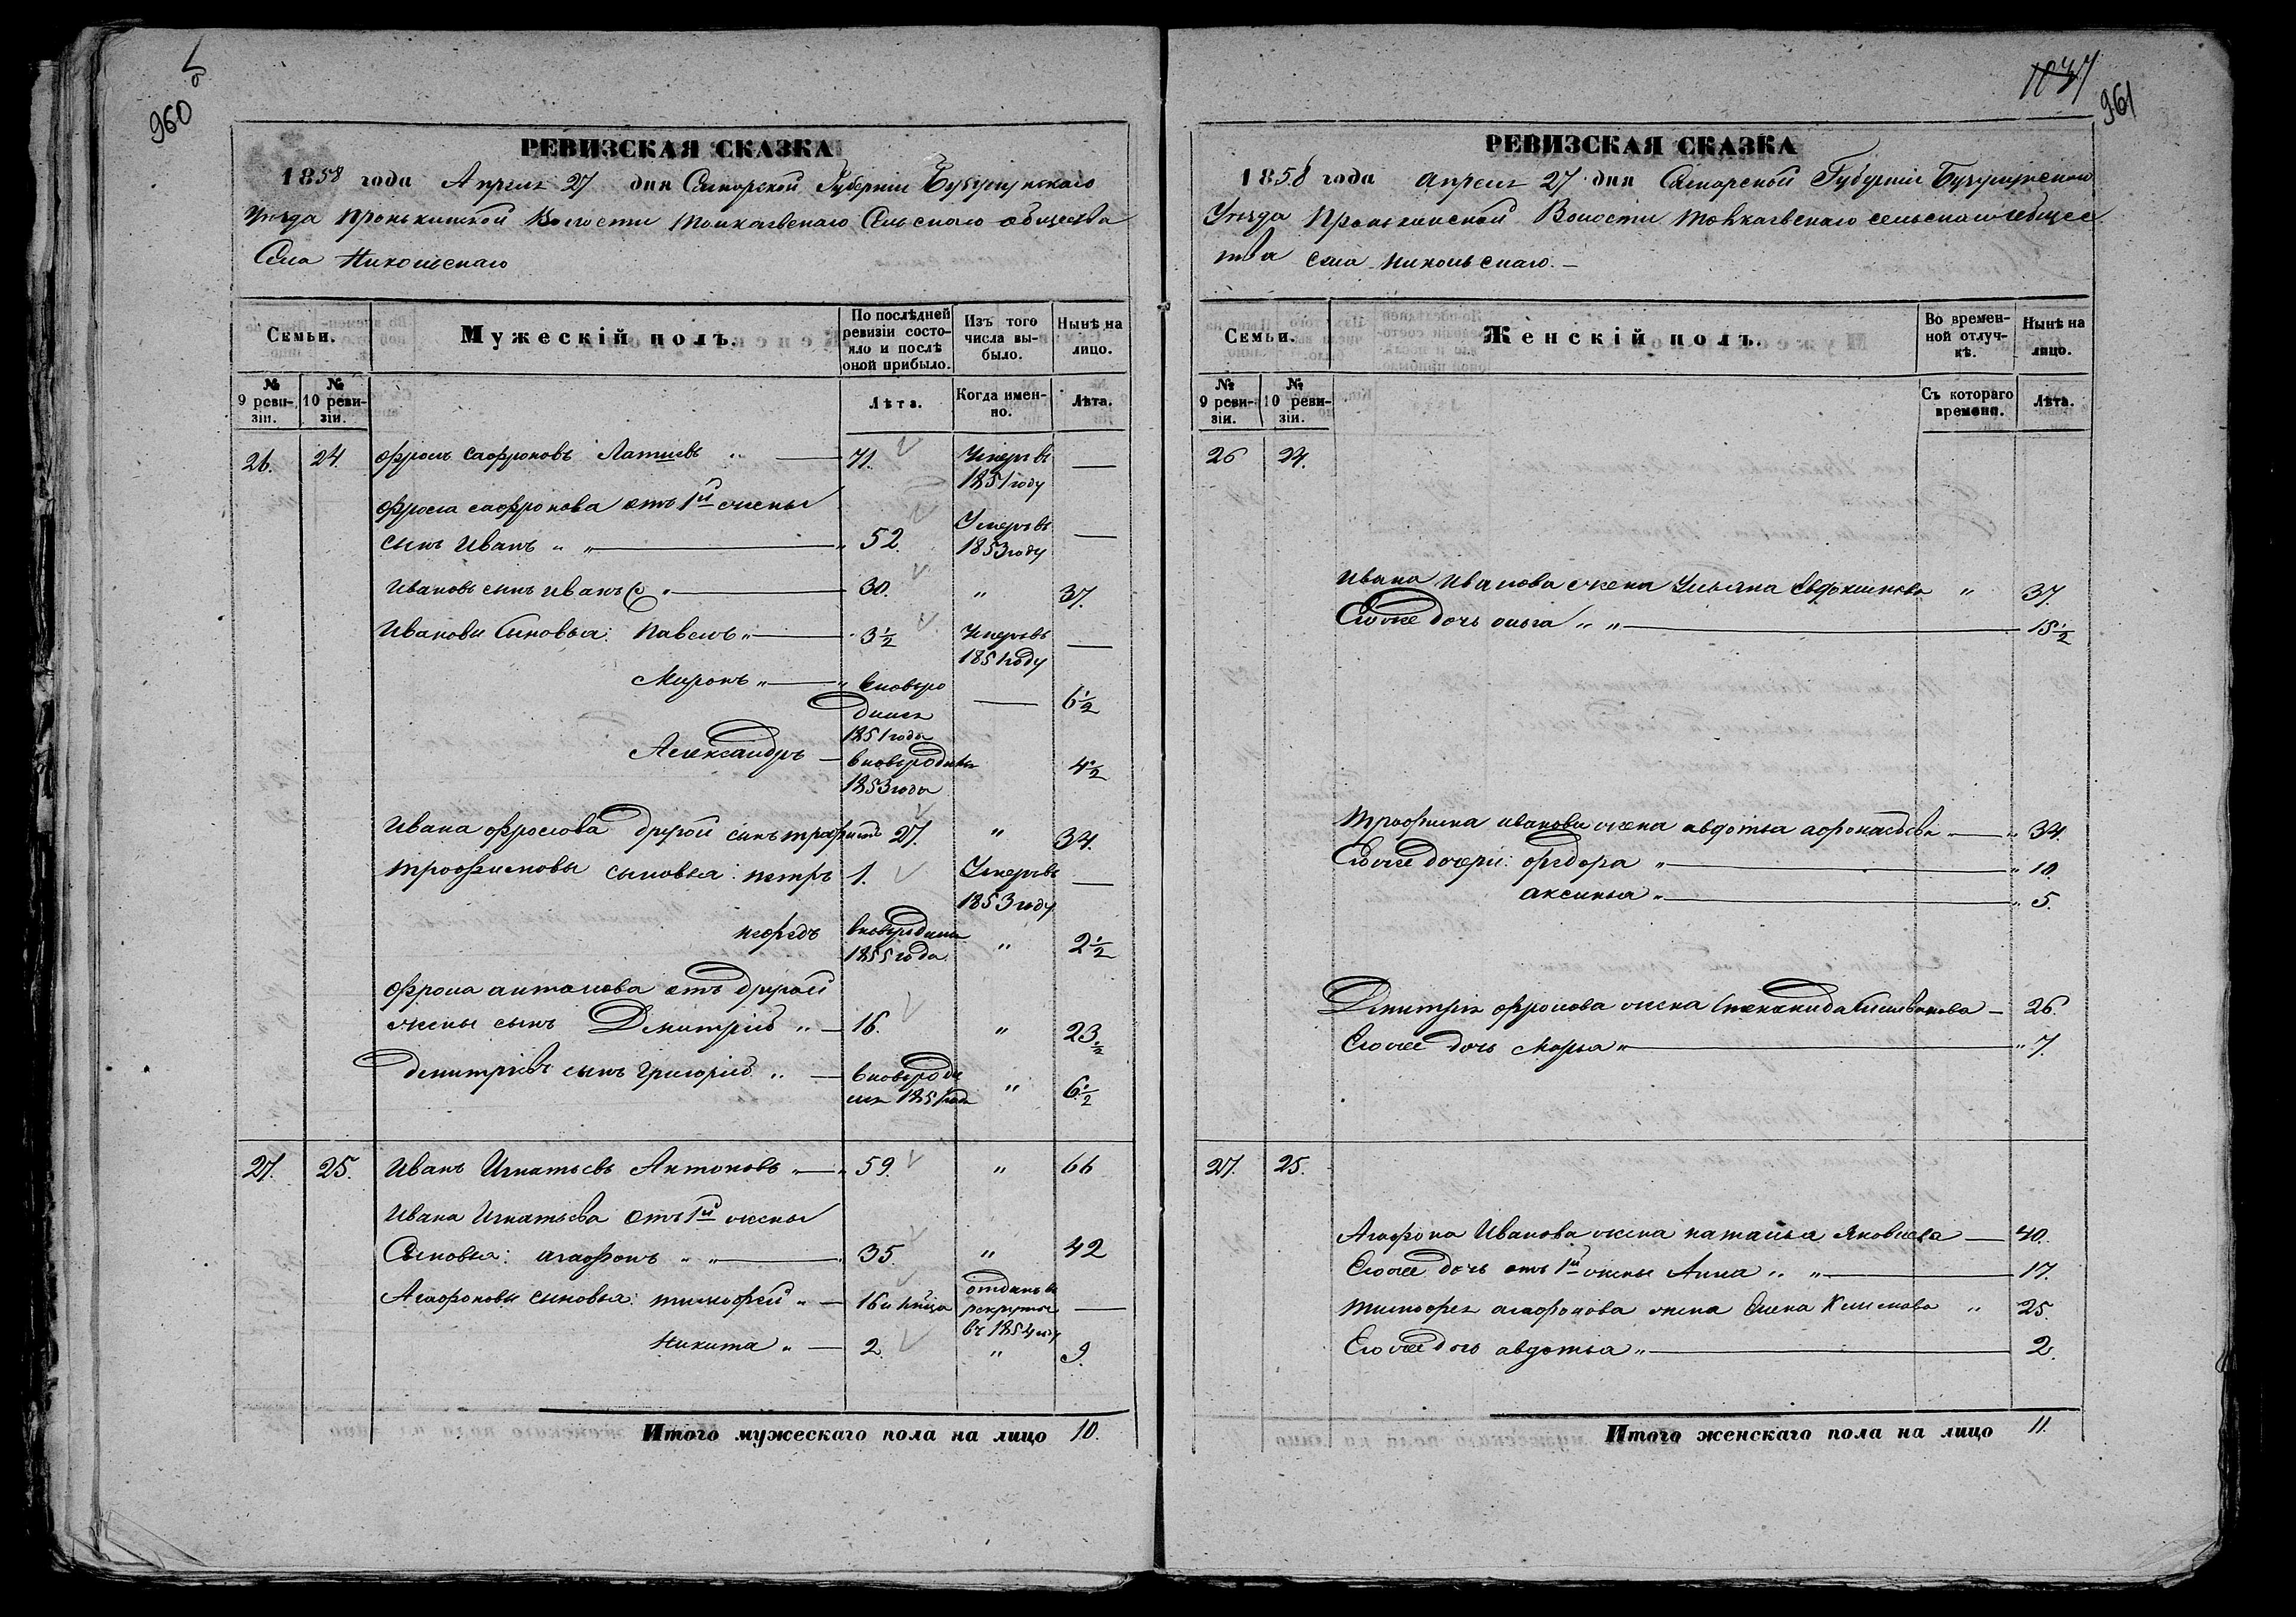 960
РЕВИЗСКАЯ СКАЗКА
1858 года Апреля 27 дня Самарской Губернiи Бугурусланскаго
Уѣзда Пронькинской Волости Толкаевскаго Сельскаго общества
Села Никольскаго
Семьи.
Мужескiй полъ.
По послѣдней ревизiи состояло и послѣ оной прибыло.
Изъ того числа выбыло.
Нынѣ на лицо.
№ 9 ревизiи.
№ 10 ревизiи.
Лѣта.
Когда именно.
Лѣта.
26. 24. Фролъ Сафроновъ 71. Умеръ въ 1851 году —
Фрола Сафронова отъ 1й жены
сынъ Иванъ " " — 52. Умеръ въ 1853 году —
Ивановъ сынъ Иванъ " — 30. " 37.
Ивановы Сыновья: Павелъ " — 3½ Умеръ въ 1851 году —
Миронъ " — вновь родился 1851 года — 6½
Александръ — вновь родился 1853 года 4½
Ивана Фролова другой сынъ трофимъ 27. " 34.
трофимовы сыновья: петръ 1. Умеръ въ 1853 году —
вновь родился 1855 года " 2½
Фрола антонова отъ другой
жены сынъ Дмитрiй " — 16. " 23½
Дмитрiевъ сынъ Григорiй " — вновь родился 1851 года " 6½
27. 25. Иванъ Игнатьевъ Антоновъ " — 59. " 66
Ивана Игнатьева отъ 1й жены
Сыновья: агафонъ " " — 35. " 42
Агафоновы сыновья: тимофей " — 16 отданъ въ рекруты въ 1854 году —
Никита " — 2. " 9.
Итого мужескаго пола на лицо 10.
1037
961
РЕВИЗСКАЯ СКАЗКА
1858 года апреля 27 дня Самарской Губернiи Бугурусланскаго
Уѣзда Пронькинской Волости толкаевскаго сельскаго общес
тва села никольскаго. —
Семьи.
Женскiй полъ.
Во временной отлучкѣ.
Нынѣ на лицо.
№ 9 ревизiи.
№ 10 ревизiи.
Съ котораго времени.
Лѣта.
26 24.
Ивана Иванова жена Ульяна Евдокимова " 37.
Его же дочь ольга " " — 15½
трофима иванова жена авдотья афонасьева — " 34.
Его же дочери: федора " — " 10.
аксинья " — " 5.
Дмитрiя фролова жена — 26.
Его же дочь Марья " — " 7.
27. 25.
Агафона Иванова жена наталья Яковлева — 40.
Его же дочь отъ 1й жены Анна " " — 17.
тимофея агафонова жена Елена Климова " 25.
Его же дочь авдотья " — 2.
Итого женскаго пола на лицо 11.